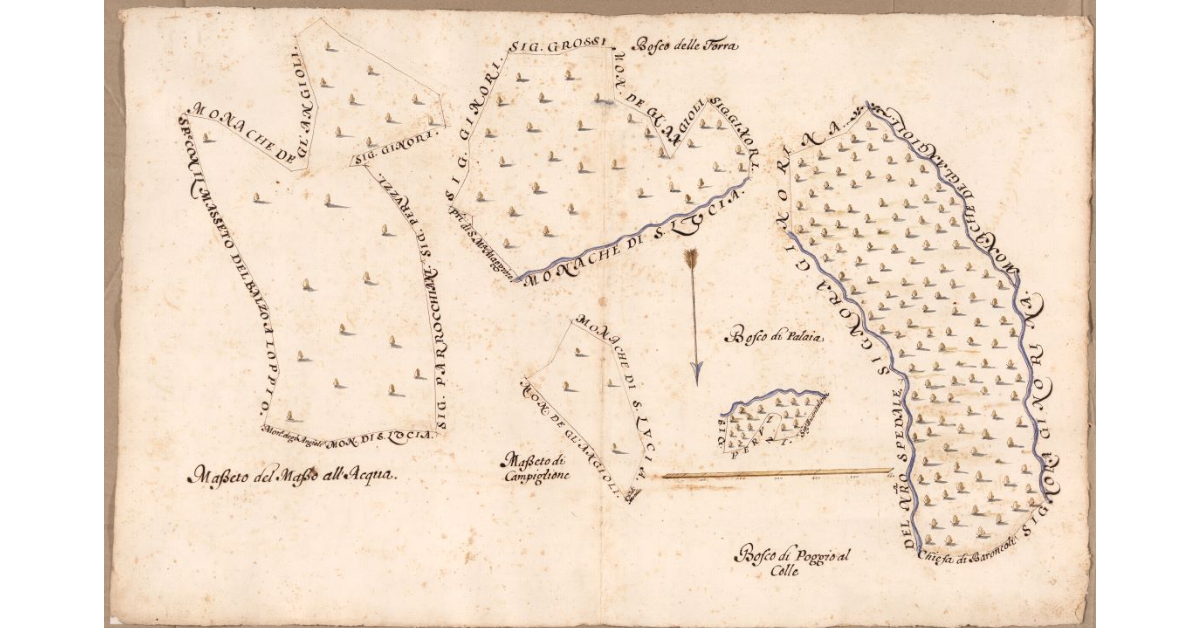 MONACHE DE GL'ANGIOLI.
SIG. GINORI.
SIG. PERUZZI.
SIG. PARROCCHIANI.
MON. DI S. LUCIA.
MASSETO DEL BALZO A LOPPIO.
Maßeto del Maßo all'Acqua.
SIG. GROSSI.
Bosco delle Torra
SIG. GINORI.
MON. DE GL'ANGIOLI
SIG. GINORI.
MONACHE DI S. LUCIA.
MONACHE DI S. LUCIA.
MON. DE GL'ANGIOLI.
Maßeto di
Campiglione
Bosco di Palaia.
SIG.
PERINI.
SIGNORA GINORI NA
MONACHE DE GL'ANGIOLI
SIGNORA GINORINA
DEL NRO SPEDALE
Chiesa di Baroncoli
Bosco di Poggio al
Colle